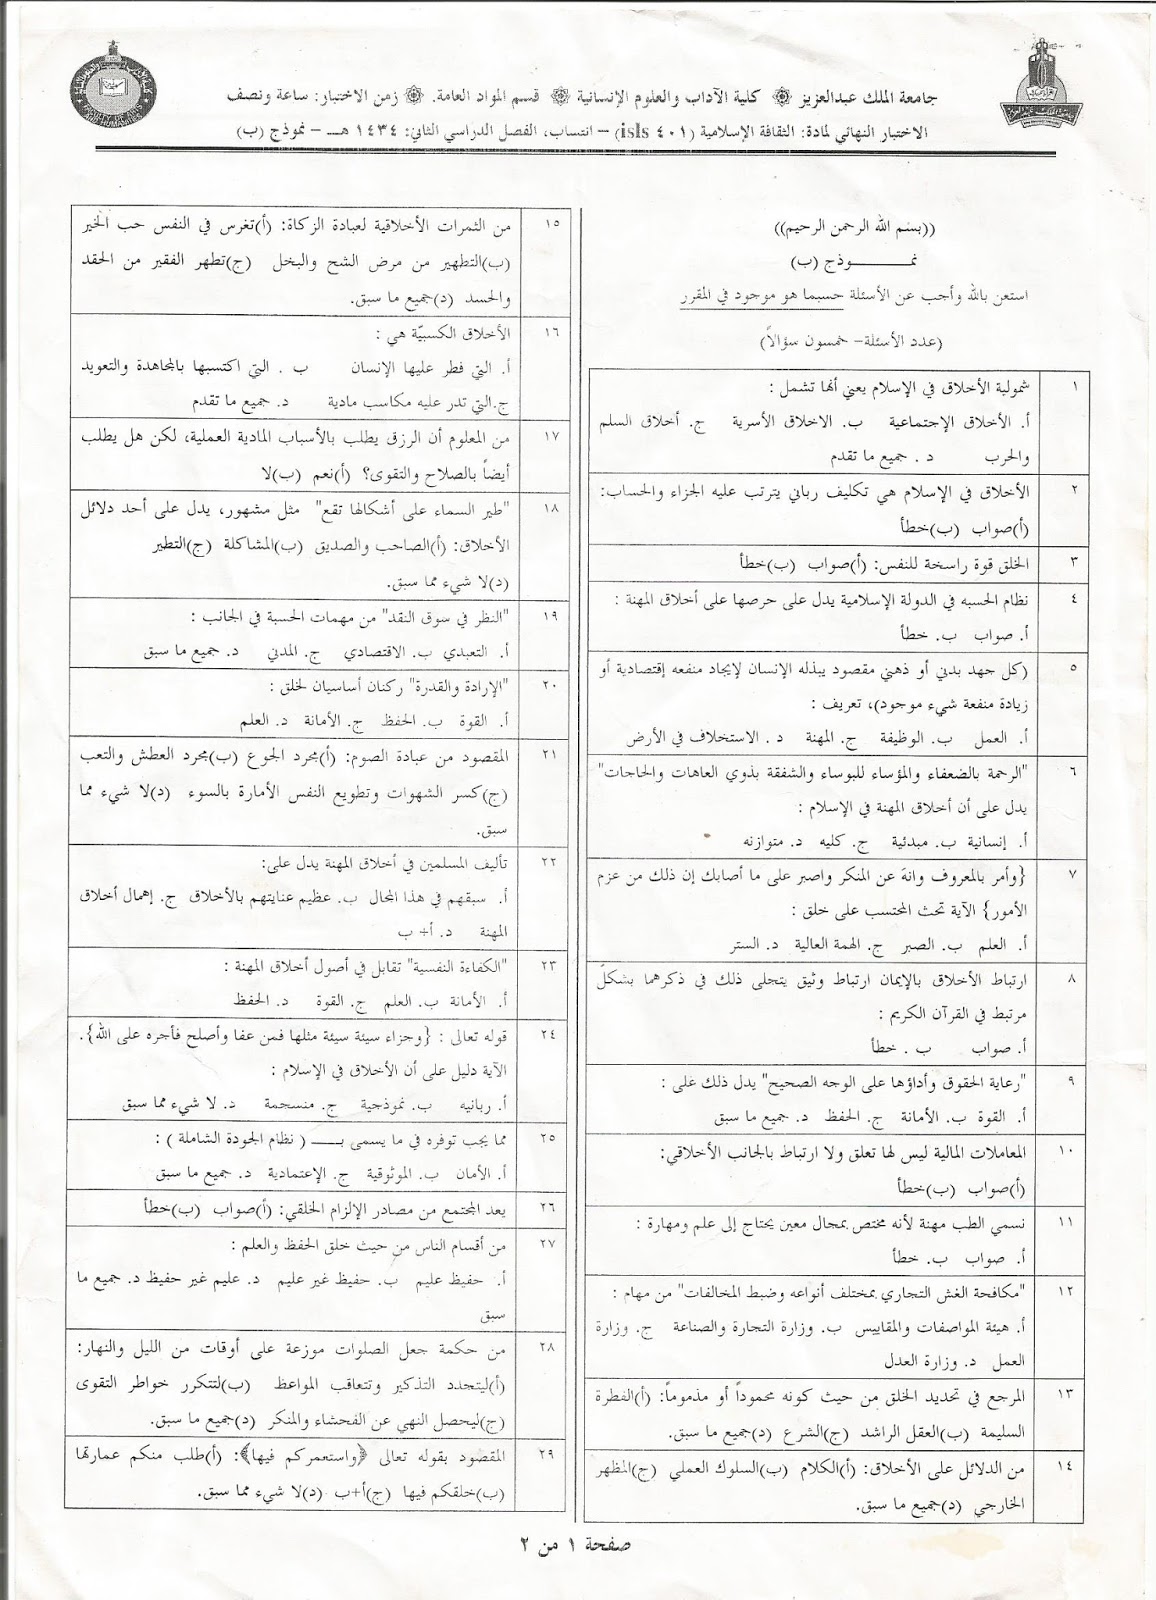 جامعة الملك عبدالعزيز ۞ كلية الآداب والعلوم الإنسانية ۞ قسم المواد العامة. ۞ زمن الاختبار: ساعة ونصف
الاختبار النهائي لمادة: الثقافة الإسلامية (isls ٤٠١) – انتساب، الفصل الدراسي الثاني: ١٤٣٤ هـــ – نموذج (ب)
((بسم الله الرحمن الرحيم))
نمـــــــــوذج (ب)
استعن بالله وأجب عن الأسئلة حسبما هو موجود في المقرر
(عدد الأسئلة- خمسون سؤالاً)
١ شمولية الأخلاق في الإسلام يعني أنها تشمل :
أ. الأخلاق الإجتماعية ب. الاخلاق الأسرية ج. أخلاق السلم
والحرب د . جميع ما تقدم
٢ الأخلاق في الإسلام هي تكليف رباني يترتب عليه الجزاء والحساب:
(أ)صواب (ب)خطأ
٣ الخلق قوة راسخة للنفس: (أ)صواب (ب)خطأ
٤ نظام الحسبه في الدولة الإسلامية يدل على حرصها على أخلاق المهنة :
أ. صواب ب. خطأ
٥ (كل جهد بدني أو ذهني مقصود يبذله الإنسان لإيجاد منفعه إقتصادية أو
زيادة منفعة شيء موجود)، تعريف :
أ. العمل ب. الوظيفة ج. المهنة د . الاستخلاف في الأرض
٦ "الرحمة بالضعفاء والمؤساء للبوساء والشفقة بذوي العاهات والحاجات"
يدل على أن أخلاق المهنة في الإسلام :
أ. إنسانية ب. مبدئية ج. كليه د. متوازنه
٧ {وأمر بالمعروف وانهَ عن المنكر واصبر على ما أصابك إن ذلك من عزم
الأمور} الآية تحث المحتسب على خلق :
أ. العلم ب. الصبر ج. الهمة العالية د. الستر
٨ ارتباط الأخلاق بالإيمان ارتباط وثيق يتجلى ذلك في ذكرهما بشكل
مرتبط في القرآن الكريم :
أ. صواب ب . خطأ
٩ "رعاية الحقوق وأداؤها على الوجه الصحيح" يدل ذلك على :
أ. القوة ب. الأمانة ج. الحفظ د. جميع ما سبق
١٠ المعاملات المالية ليس لها تعلق ولا ارتباط بالجانب الأخلاقي:
(أ)صواب (ب)خطأ
١١ نسمي الطب مهنة لأنه مختص بمجال معين يحتاج إلى علم ومهارة :
أ. صواب ب. خطأ
١٢ "مكافحة الغش التجاري بمختلف أنواعه وضبط المخالفات" من مهام :
أ. هيئة المواصفات والمقاييس ب. وزارة التجارة والصناعة ج. وزارة
العمل د. وزارة العدل
١٣ المرجع في تحديد الخلق من حيث كونه محموداً أو مذموماً: (أ)الفطرة
السليمة (ب)العقل الراشد (ج)الشرع (د)جميع ما سبق.
١٤ من الدلائل على الأخلاق: (أ)الكلام (ب)السلوك العملي (ج)المظهر
الخارجي (د)جميع ما سبق.
١٥ من الثمرات الأخلاقية لعبادة الزكاة: (أ)تغرس في النفس حب الخير
(ب)التطهير من مرض الشح والبخل (ج)تطهر الفقير من الحقد
والحسد (د)جميع ما سبق.
١٦ الأخلاق الكسبيّة هي :
أ. التي فطر عليها الإنسان ب . التي اكتسبها بالمجاهدة والتعويد
ج.التي تدر عليه مكاسب مادية د. جميع ما تقدم
١٧ من المعلوم أن الرزق يطلب بالأسباب المادية العملية، لكن هل يطلب
أيضاً بالصلاح والتقوى؟ (أ)نعم (ب)لا
١٨ "طير السماء على أشكالها تقع" مثل مشهور، يدل على أحد دلائل
الأخلاق: (أ)الصاحب والصديق (ب)المشاكلة (ج)التطير
(د)لا شيء مما سبق.
١٩ "النظر في سوق النقد" من مهمات الحسبة في الجانب :
أ. التعبدي ب. الاقتصادي ج. المدني د. جميع ما سبق
٢٠ "الإرادة والقدرة" ركنان أساسيان لخلق :
أ. القوة ب. الحفظ ج. الأمانة د. العلم
٢١ المقصود من عبادة الصوم: (أ)مجرد الجوع (ب)مجرد العطش والتعب
(ج)كسر الشهوات وتطويع النفس الأمارة بالسوء (د)لا شيء مما
سبق.
٢٢ تأليف المسلمين في أخلاق المهنة يدل على:
أ. سبقهم في هذا المجال ب. عظيم عنايتهم بالأخلاق ج. إهمال أخلاق
المهنة د. أ+ ب
٢٣ "الكفاءة النفسية" تقابل في أصول أخلاق المهنة :
أ. الأمانة ب. العلم ج. القوة د. الحفظ
٢٤ قوله تعالى : {وجزاء سيئة سيئة مثلها فمن عفا وأصلح فأجره على الله}.
الآية دليل على أن الأخلاق في الإسلام :
أ. ربانيه ب. نموذجية ج. منسجمة د. لا شيء مما سبق
٢٥ مما يجب توفره في ما يسمى بــــ ( نظام الجودة الشاملة ) :
أ. الأمان ب. الموثوقية ج. الإعتمادية د. جميع ما سبق
٢٦ يعد المجتمع من مصادر الإلزام الخلقي: (أ)صواب (ب)خطأ
٢٧ من أقسام الناس من حيث خلق الحفظ والعلم :
أ. حفيظ عليم ب. حفيظ غير عليم د. عليم غير حفيظ د. جميع ما
سبق
٢٨ من حكمة جعل الصلوات موزعة على أوقات من الليل والنهار:
(أ)ليتجدد التذكير وتتعاقب المواعظ (ب)لتتكرر خواطر التقوى
(ج)ليحصل النهي عن الفحشاء والمنكر (د)جميع ما سبق.
٢٩ المقصود بقوله تعالى ﴿واستعمركم فيها﴾: (أ)طلب منكم عمارتها
(ب)خلقكم فيها (ج)أ+ب (د)لا شيء مما سبق.
صفحة ١ من ٢